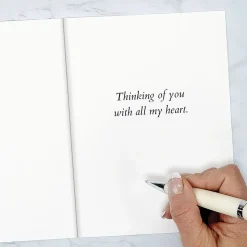 Thinking of you
with all my heart.